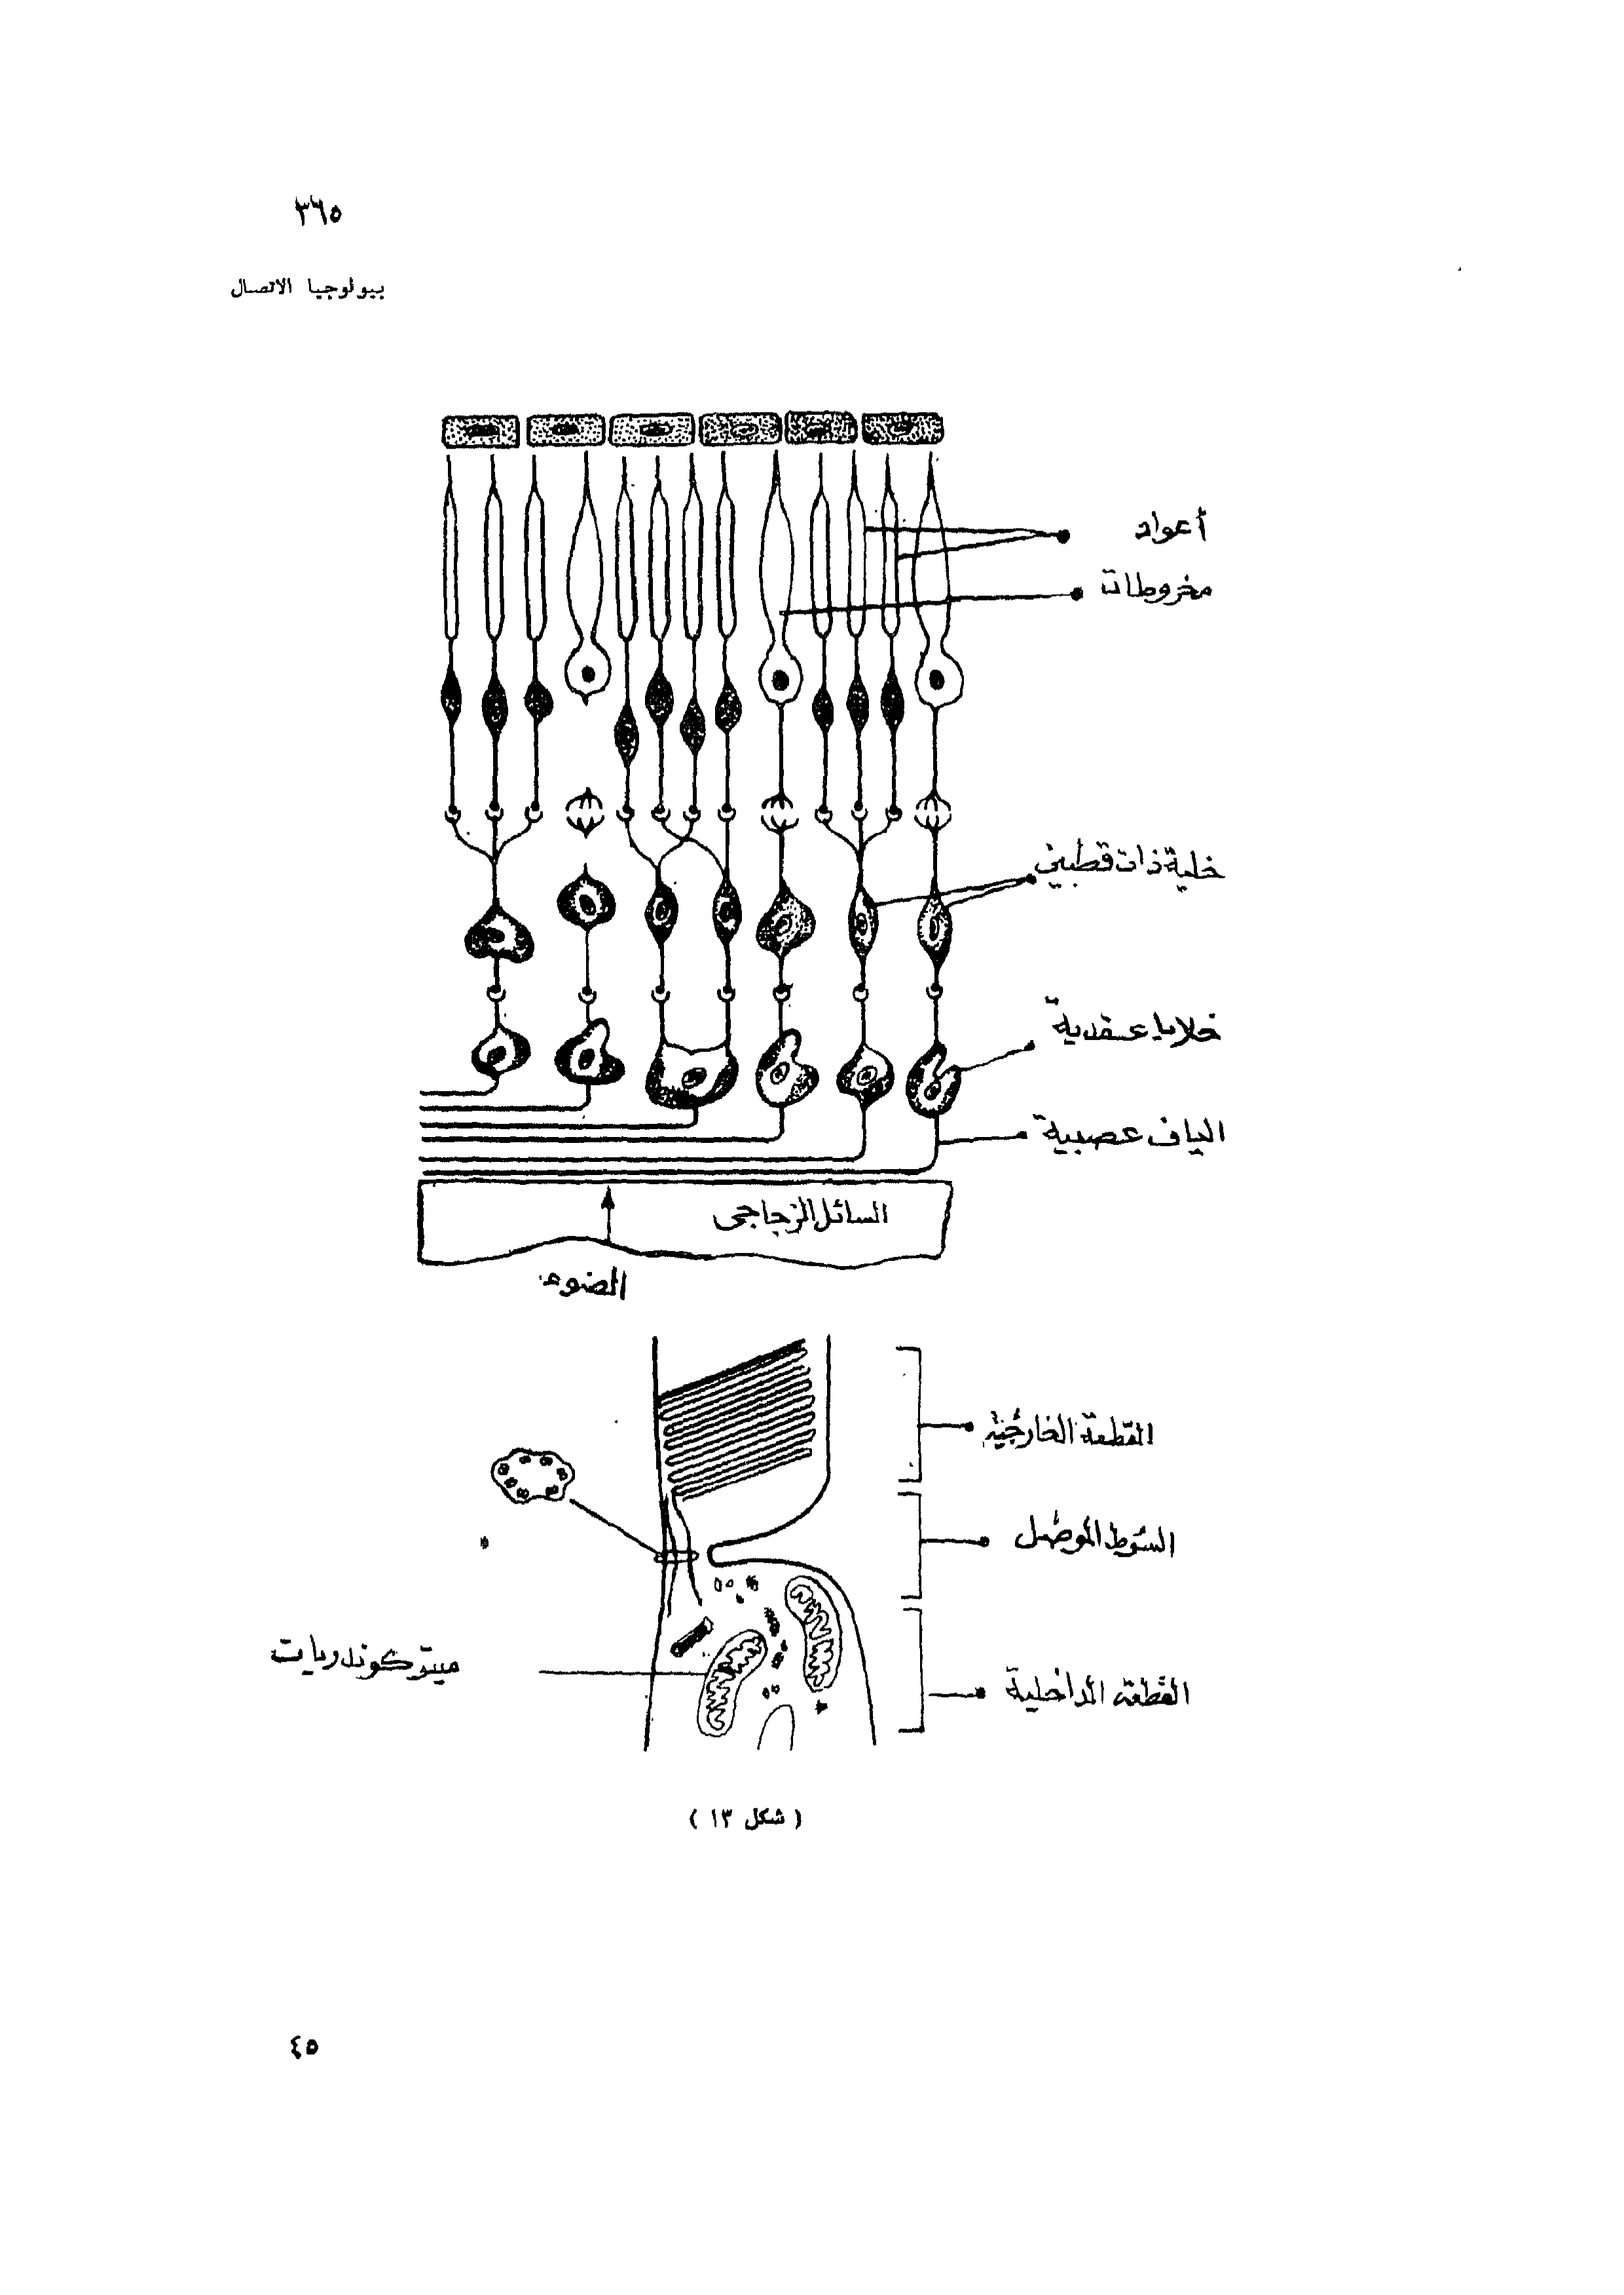 ٣٦٥
بيولوجيا الاتصال
أعواد
مخروطات
خلية ذات قطبين
خلايا عقدية
الياف عصبية
السائل الزجاجى
الضوء
القطعة الخارجية
السوط الموصل
ميتوكوندريات
القطعة الداخلية
( شكل ١٣ )
٤٥